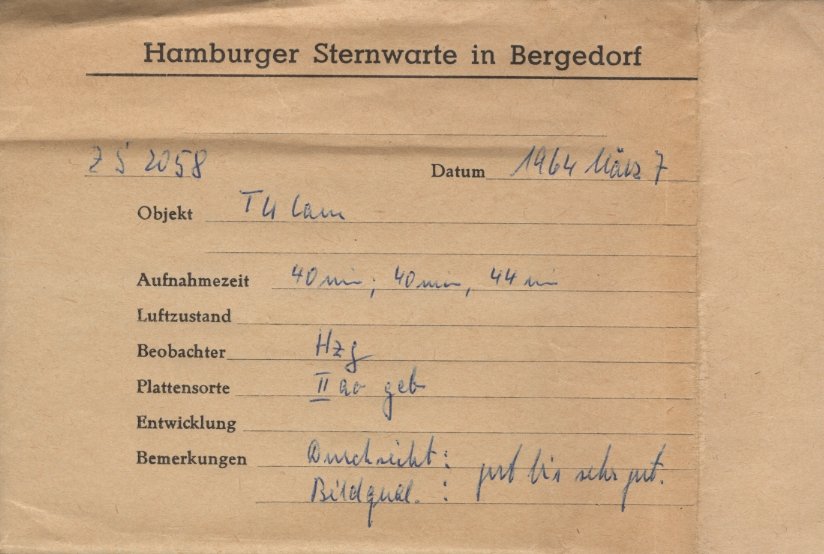 Hamburger Sternwarte in Bergedorf
ZS 2058 Datum 1964 März 7
Objekt TU Cam
Aufnahmezeit 40 min; 40 min, 44 min
Luftzustand
Beobachter Hzg
Plattensorte IIao geb
Entwicklung
Bemerkungen Durchsicht: gut bis sehr gut.
Bildqual. :